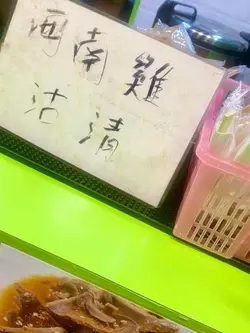 海南雞
沽清